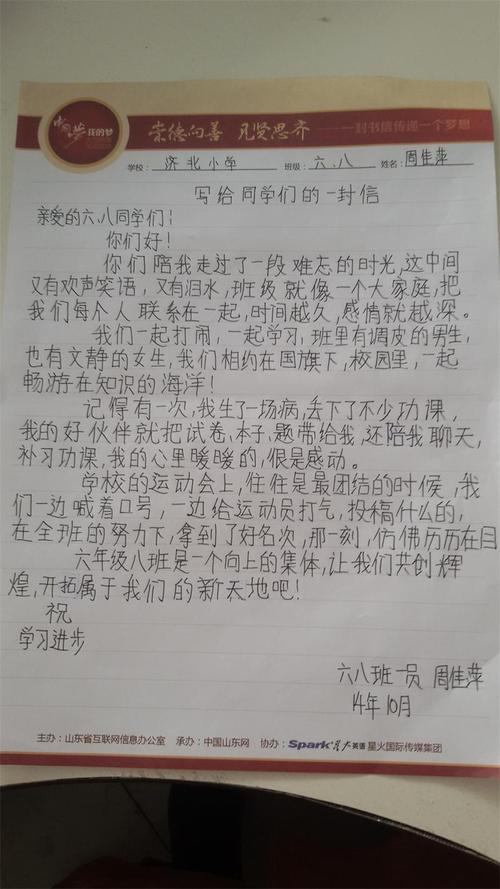 中国梦 我的梦
崇德向善 见贤思齐 ——一封书信传递一个梦想
学校：济北小学 班级：六、八 姓名：周佳萍
写给同学们的一封信
亲爱的六、八同学们！
你们好！
你们陪我走过了一段难忘的时光，这中间
又有欢声笑语，又有泪水，班级就像一个大家庭，把
我们每个人联系在一起，时间越久，感情就越深。
我们一起打闹，一起学习，班里有调皮的男生，
也有文静的女生，我们相约在国旗下，校园里，一起
畅游在知识的海洋！
记得有一次，我生了一场病，丢下了不少功课，
我的好伙伴就把试卷、本子、题带给我，还陪我聊天，
补习功课，我的心里暖暖的，很是感动。
学校的运动会上，往往是最团结的时候，我
们一边喊着口号，一边给运动员打气，投稿什么的，
在全班的努力下，拿到了好名次，那一刻，仿佛历历在目
六年级八班是一个向上的集体，让我们共创辉
煌，开拓属于我们的新天地吧！
祝
学习进步
六八班一员 周佳萍
14年10月
主办：山东省互联网信息办公室 承办：中国山东网 协办：Spark 星火英语 星火国际传媒集团